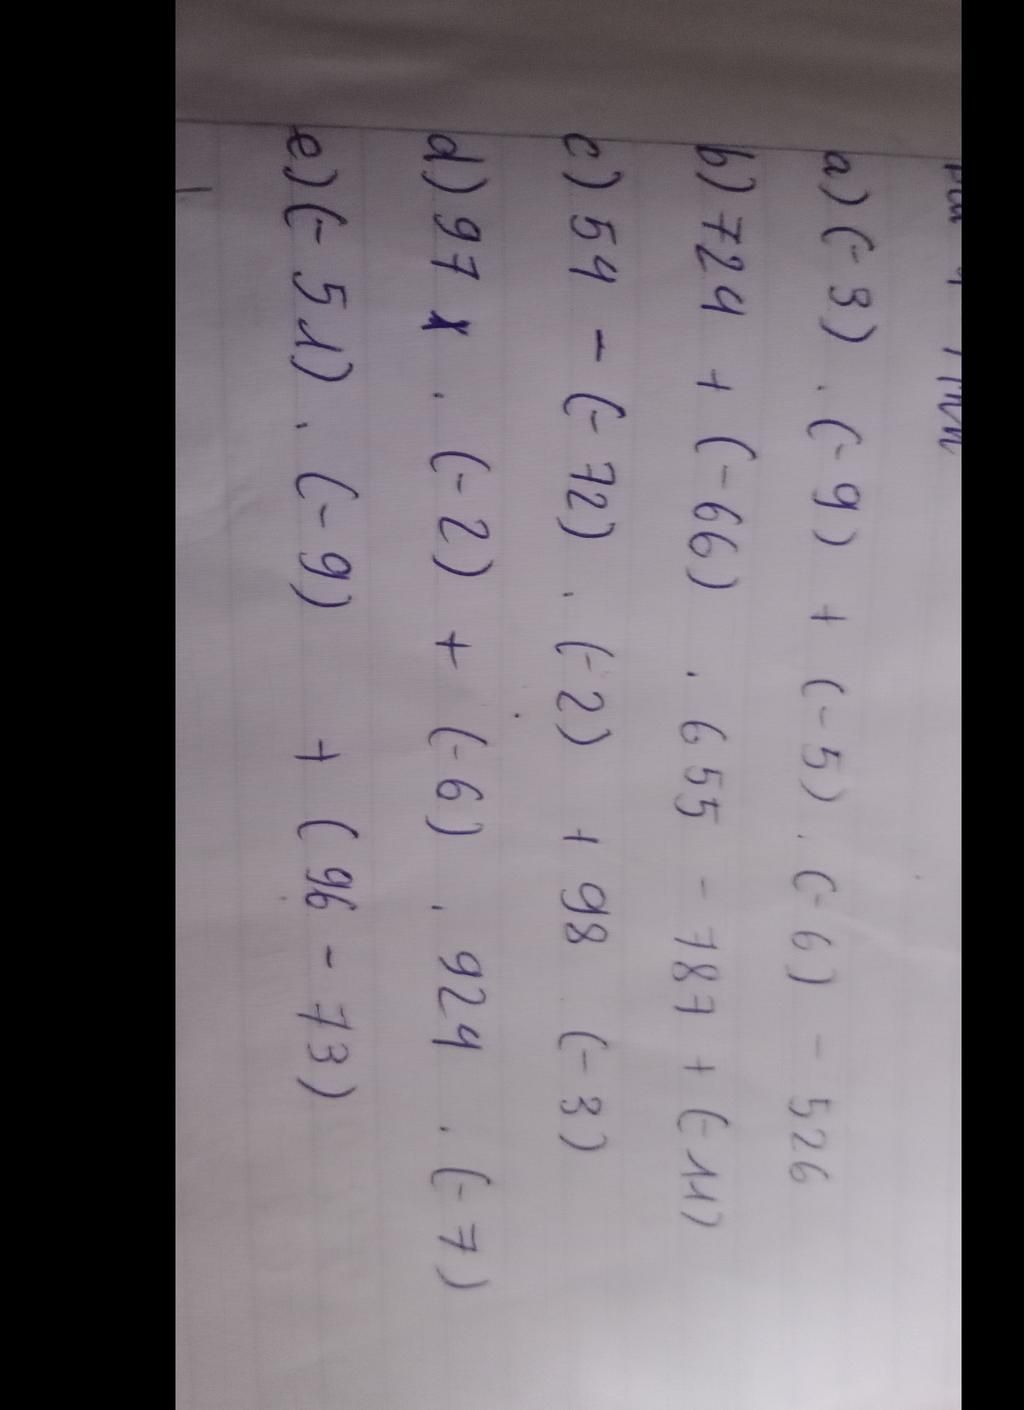 a) (-3) . (-9) + (-5) . (-6) - 526
b) 724 + (-66) . 655 - 787 + (-11)
c) 54 - (-72) . (-2) + 98 (-3)
d) 97 . (-2) + (-6) . 924 . (-7)
e) (-51) . (-9) + (96 - 73)